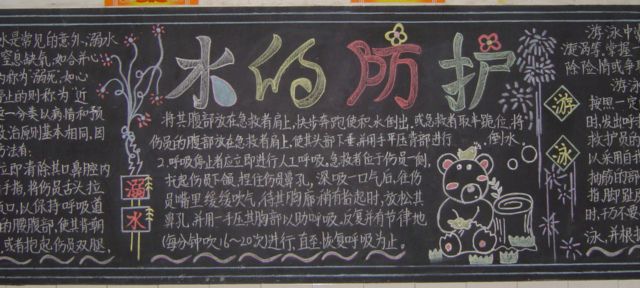 水的防护
水是常见的意外,溺水
窒息缺氧,如合并心
为称为"溺死,如心
停止的则称为"近
一分类以病情和预
治原则基本相同,因
方法有:
即清除其口鼻腔内
手指,将伤员舌头拉
口,以保持呼吸道
的腰腹部,使其背朝
或者抱起伤员双腿,
溺
水
将其腹部放在急救者肩上,快步奔跑使积水倒出,或急救者取半跪位,将
伤员的腹部放在急救者腿上,使其头部下垂,并用手平压背部进行
倒水
2.呼吸停止者应立即进行人工呼吸,急救者位于伤员一侧,
托起伤员下颌,捏住伤员鼻孔,深吸一口气后,往伤
员嘴里缓缓吹气,待其胸廓稍有抬起时,放松其
鼻孔,并用一手压其胸部以助呼吸,反复并有节律地
(每分钟吹16~20次)进行,直至恢复呼吸为止。
游
泳
游泳中
漩涡等,掌握
除险情或争取
游泳
按照一定
时,发出呼
救护员的
以采用自
抽筋的部
指,脚趾
时,千万不要
泳,并根据